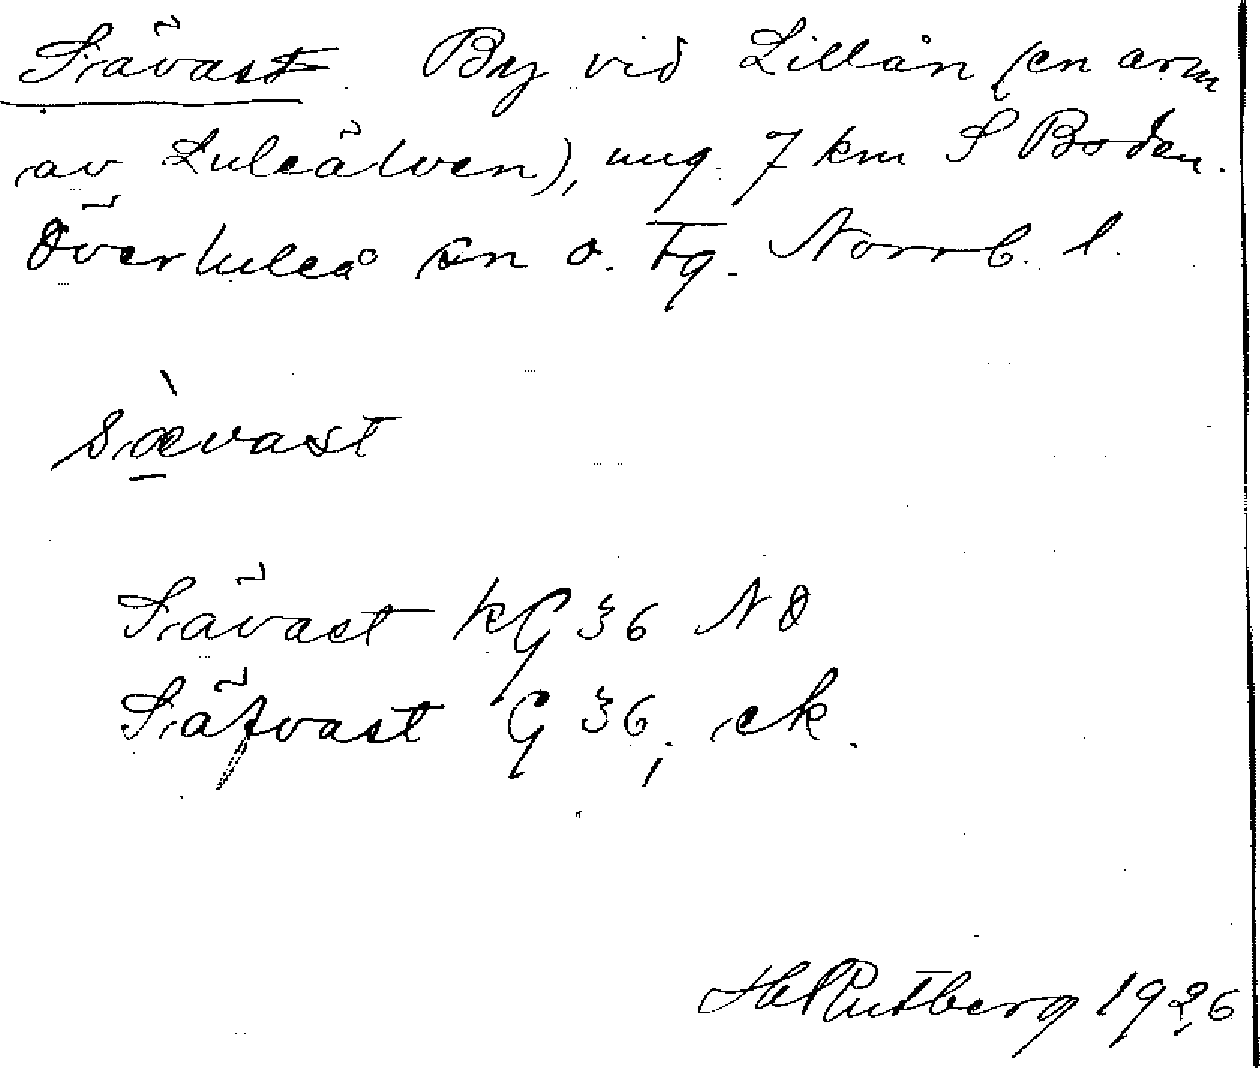 Sävast By vid Lillån (en arm
av Luleälven), ung. 7 km S Boden.
Överluleå sn o. tg. Norrb. l.
sæ̀vast
Sävast kG 36 NO
Säfvast G 36, ek.
Hd Rutberg 1926